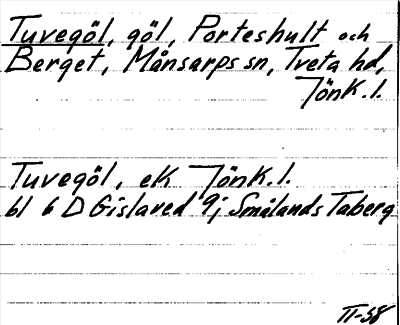 Tuvegöl, göl, Porteshult och
Berget, Månsarps sn, Tveta hd,
Jönk. l.
Tuvegöl, ek Jönk. l.
bl 6 D Gislaved 9j Smålands Taberg
II-58